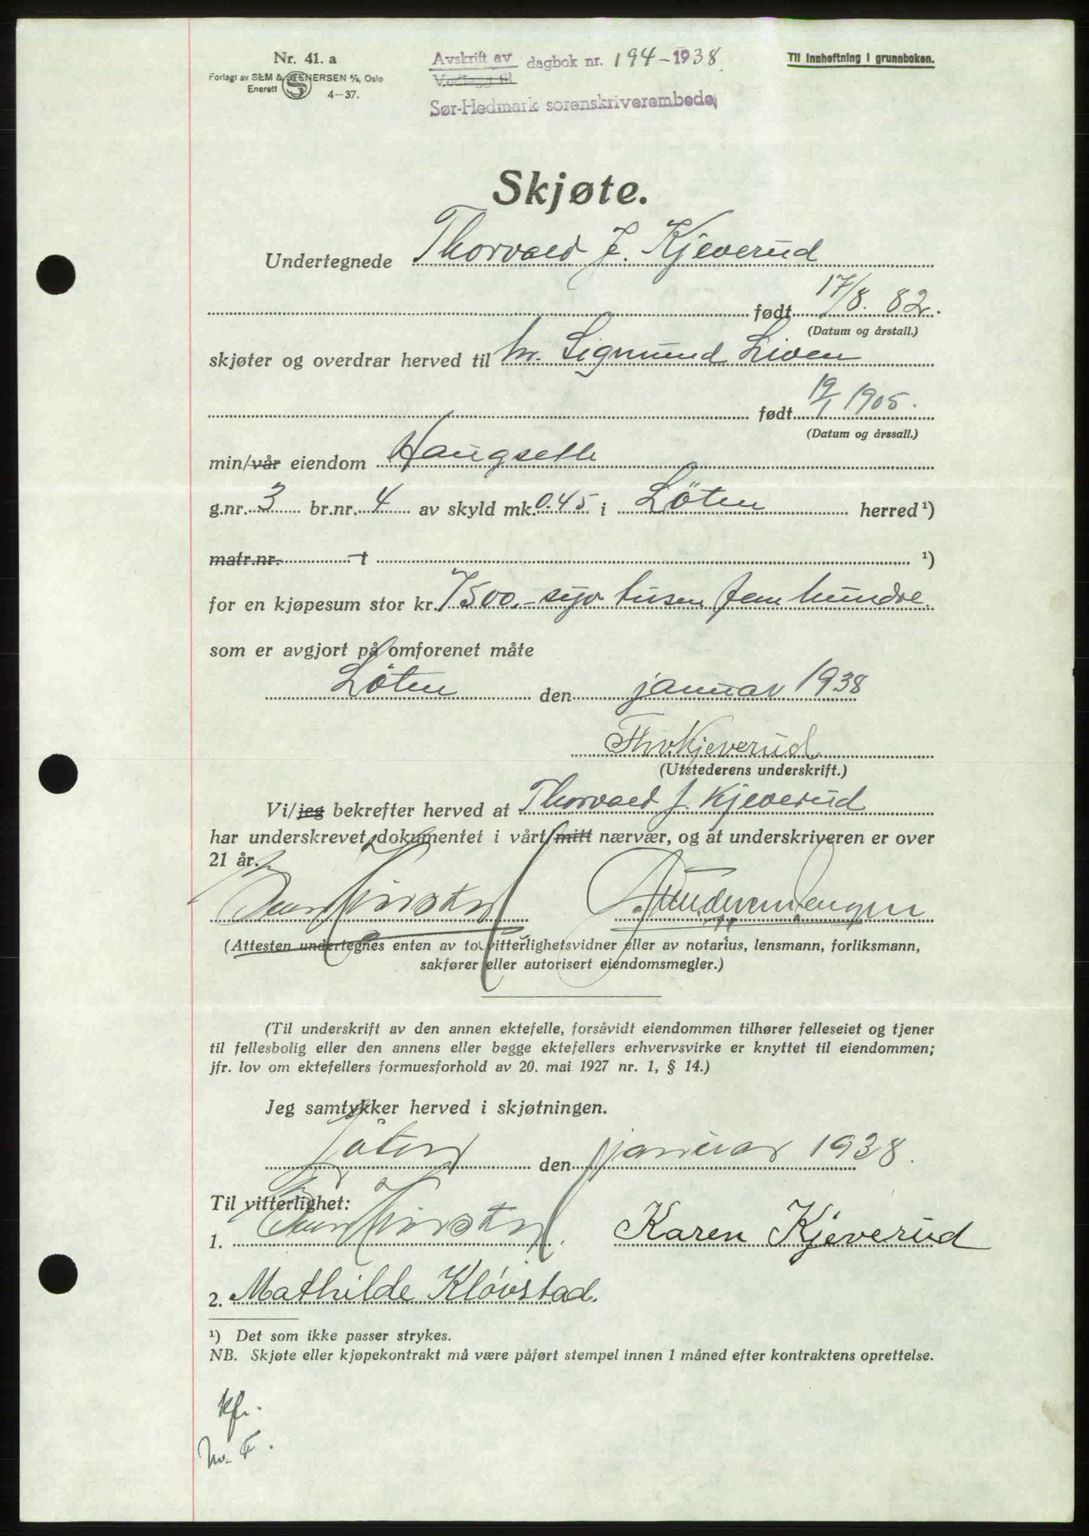 Nr. 41. a
Forlagt av SEM & STENERSEN A/S, Oslo
Enerett
4—37.
Avskrift av
Vedlegg til
dagbok nr. 194-1938.
Sør-Hedmark sorenskriverembede,
Til innheftning i grunnboken.
Skjøte.
Undertegnede Thorvald J. Kjeverud
født 17/8. 82.
(Datum og årstall.)
skjøter og overdrar herved til hr. Sigmund Liven
født 19/1 1905.
(Datum og årssall.)
min/vår eiendom Haugseth
g.nr. 3 br.nr. 4 av skyld mk. 0.45 i Løten herred ¹)
matr.nr. i ¹)
for en kjøpesum stor kr. 7500.- syv tusen fem hundre.
som er avgjort på omforenet måte
Løten den januar 1938
Thv. Kjeverud
(Utstederens underskrift.)
Vi/jeg bekrefter herved at Thorvald J. Kjeverud
har underskrevet dokumentet i vårt/mitt nærvær, og at underskriveren er over
21 år.
(Attesten undertegnes enten av to vitterlighetsvidner eller av notarius, lensmann, forliksmann,
sakfører eller autorisert eiendomsmegler.)
(Til underskrift av den annen ektefelle, forsåvidt eiendommen tilhører felleseiet og tjener
til fellesbolig eller den annens eller begge ektefellers erhvervsvirke er knyttet til eiendommen;
jfr. lov om ektefellers formuesforhold av 20. mai 1927 nr. 1, § 14.)
Jeg samtykker herved i skjøtningen.
Løten den januar 1938.
Til vitterlighet:
1. Karen Kjeverud
2. Mathilde Kløvstad.
¹) Det som ikke passer strykes.
NB. Skjøte eller kjøpekontrakt må være påført stempel innen 1 måned efter kontraktens oprettelse.
kfr.